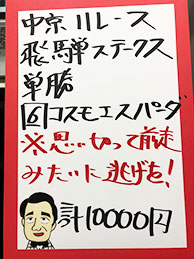 中京11レース
飛騨ステークス
単勝
⑥コスモエスパーダ
※思い切って前走
みたいに逃げを!
計10000円